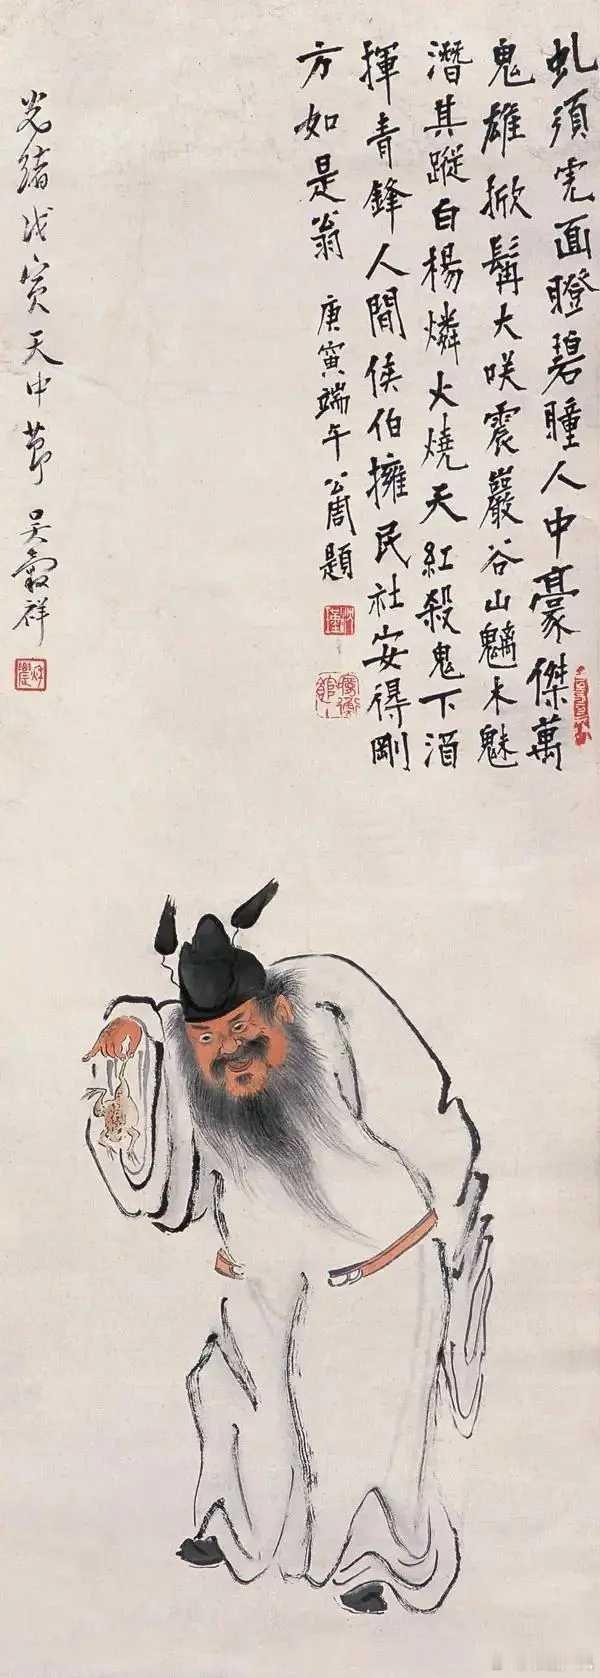 虬須虎面瞪碧瞳人中豪傑萬
鬼雄掀髯大咲震巖谷山魑木魅
潛其蹤白楊燐火燒天紅殺鬼下酒
揮青鋒人間侯伯擁民社安得剛
方如是翁
庚寅端午公周題
光緒戊寅天中節 吴穀祥